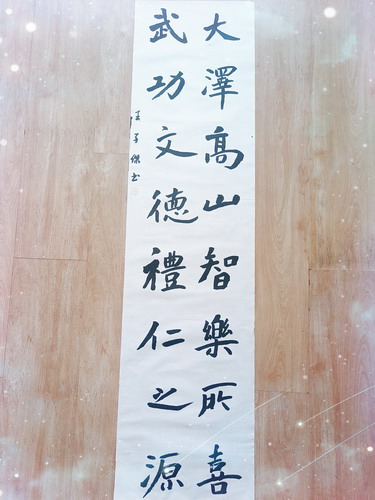 大澤高山智樂所喜
武功文德禮仁之源
王子傑书